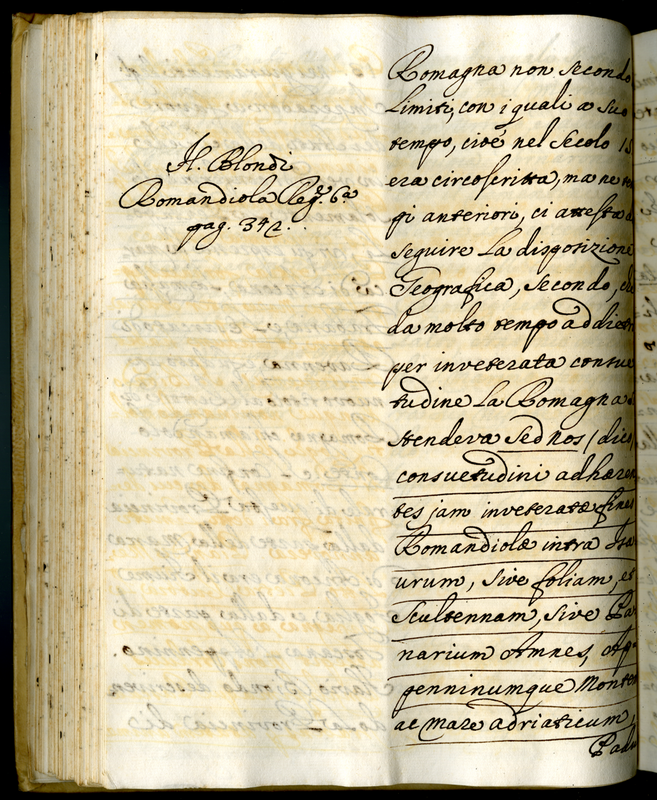 Fl. Blondi
Romandiola Reg.e 6a
pag. 342.
Romagna non secondo
Limiti, con i quali a suo
tempo, cioé nel secolo 15
era circoscritta, ma ne tem
pi anteriori, ci attesta di
seguire La disposizione
Geografica, secondo, che
da molto tempo addietro
per inveterata consue
tudine La Romagna s
stendeva Sed nos (dice)
consuetudini adhæren
tes jam inveteratæ fines
Romandiolæ intra Isa
urum, sive foliam, et
Scultennam, sive Pa
narium Amnes, Ap
penninumque Montem
ac mare adriaticum,
Padu